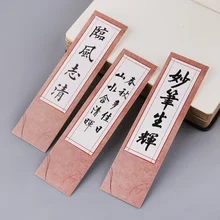 臨風志清
春秋多佳日
山水含清暉
妙筆生輝